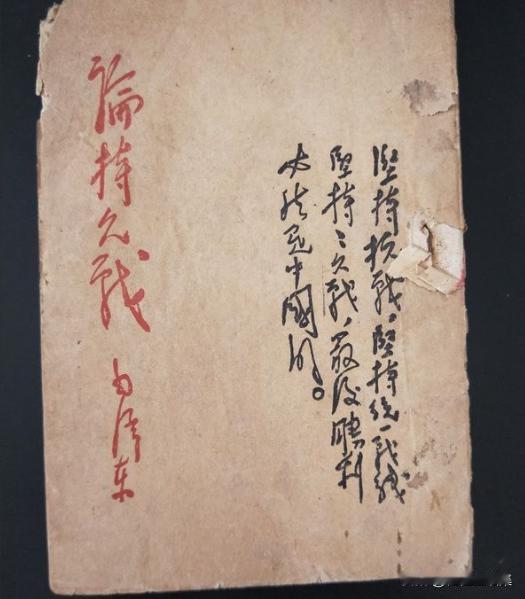 堅持抗戰，堅持統一战线
堅持持久戰，最後勝利
必然是中國的。
論持久戰
毛泽东